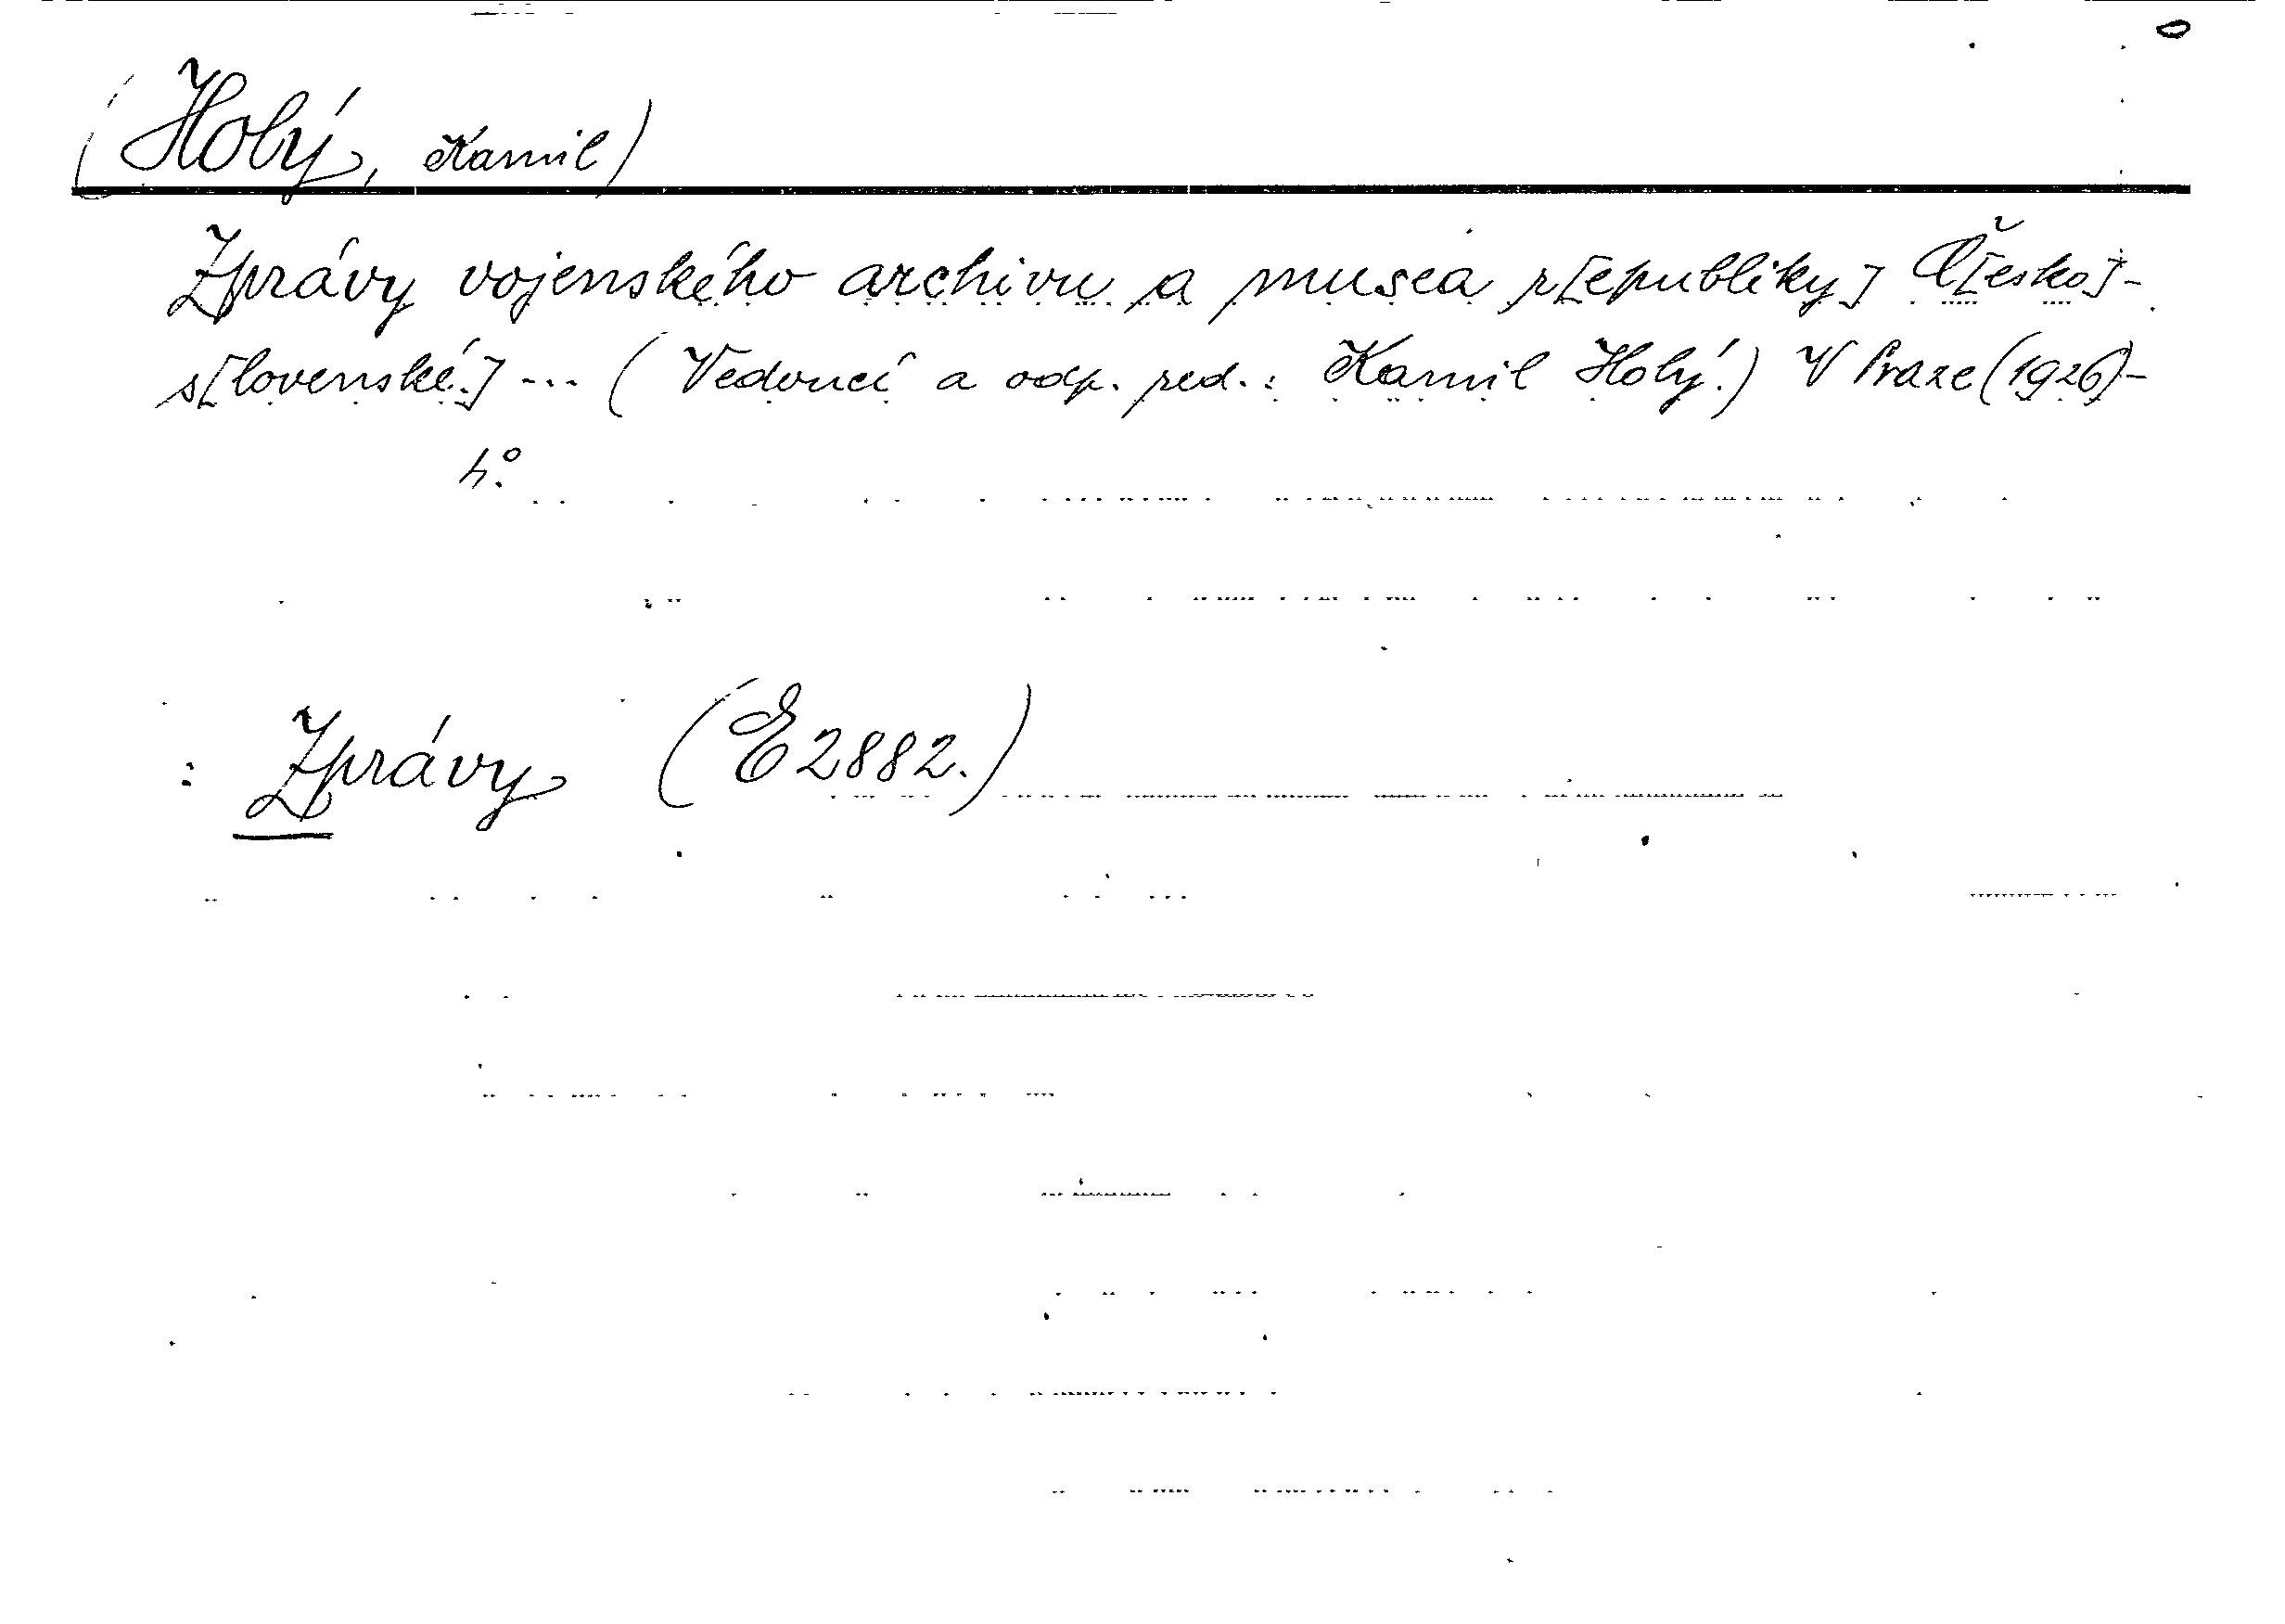 (Holý, Kamil)
Zprávy vojenského archivu a musea r[epubliky] Č[esko]-
s[lovenské.] ... ( Vedoucí a odp. red.: Kamil Holý.) V Praze (1926)-
4°.
: Zprávy (E2882.)